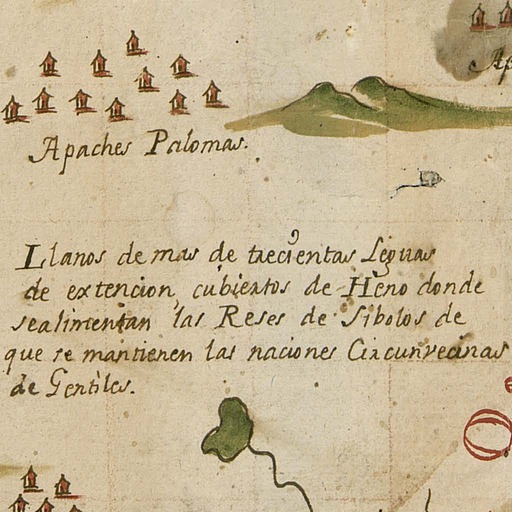 Ap
Apaches Palomas.
Llanos de mas de trecientas Leguas
de extencion, cubiertos de Heno donde
sealimentan las Reses de Sibolos de
que se mantienen las naciones Circunvecinas
de Gentiles.